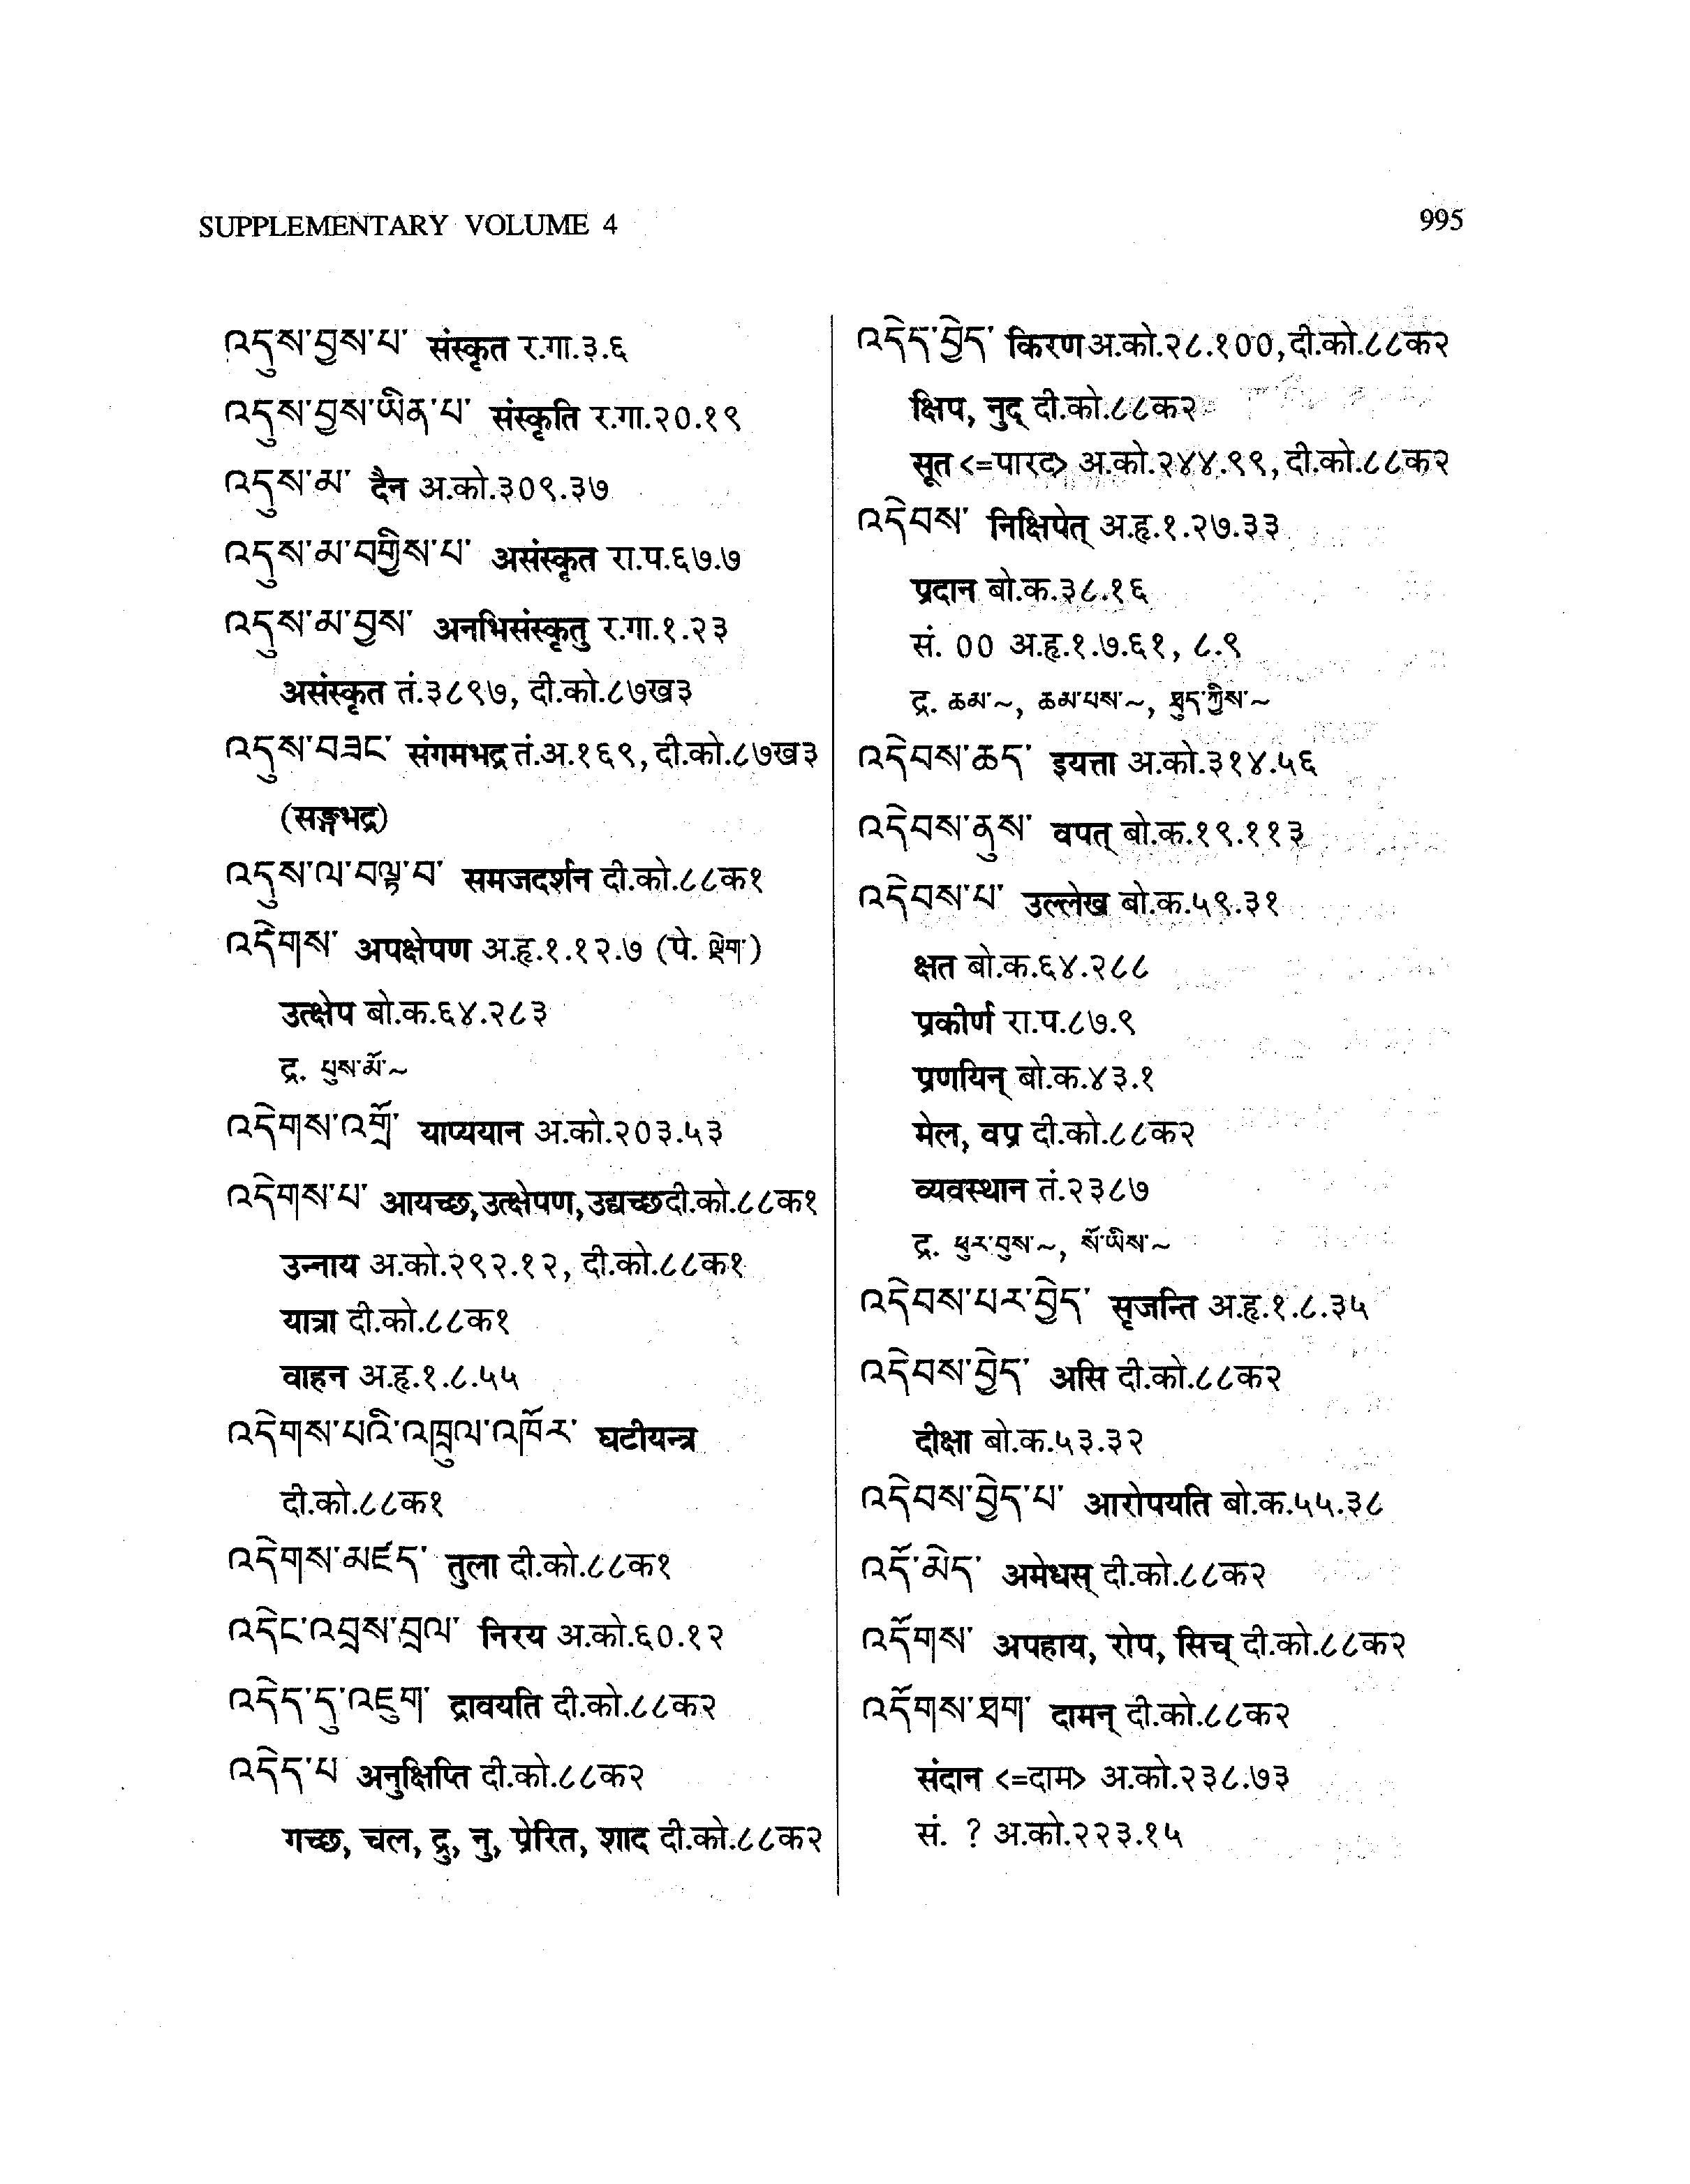 SUPPLEMENTARY VOLUME 4
995
འདུས་བྱས་པ་ संस्कृत र.गा.३.६
འདུས་བྱས་ཡིན་པ་ संस्कृति र.गा.२०.१९
འདུས་མ་ दैन अ.को.३०९.३७
འདུས་མ་བགྱིས་པ་ असंस्कृत रा.प.६७.७
འདུས་མ་བྱས་ अनभिसंस्कृतु र.गा.१.२३
असंस्कृत तं.३८९७, दी.को.८७ख३
འདུས་བཟང་ संगमभद्र तं.अ.१६९, दी.को.८७ख३
(सङ्गभद्र)
འདུས་ལ་བལྟ་བ་ समजदर्शन दी.को.८८क१
འདེགས་ अपक्षेपण अ.हृ.१.१२.७ (पे. ལྡེག་)
उत्क्षेप बो.क.६४.२८३
द्र. པུས་མོ་~
འདེགས་འགྲོ་ याप्ययान अ.को.२०३.५३
འདེགས་པ་ आयच्छ, उत्क्षेपण, उद्यच्छ दी.को.८८क१
उन्नाय अ.को.२९२.१२, दी.को.८८क१
यात्रा दी.को.८८क१
वाहन अ.हृ.१.८.५५
འདེགས་པའི་འཁྲུལ་འཁོར་ घटीयन्त्र
दी.को.८८क१
འདེགས་མཛད་ तुला दी.को.८८क१
འདེང་འབྲས་བྲལ་ निरय अ.को.६०.१२
འདེད་དུ་འཇུག་ द्रावयति दी.को.८८क२
འདེད་པ་ अनुक्षिप्ति दी.को.८८क२
गच्छ, चल, द्रु, नु, प्रेरित, शाद दी.को.८८क२
འདེད་བྱེད་ किरण अ.को.२८.१००, दी.को.८८क२
क्षिप, नुद् दी.को.८८क२
सूत <=पारद> अ.को.२४४.९९, दी.को.८८क२
འདེབས་ निक्षिपेत् अ.हृ.१.२७.३३
प्रदान बो.क.३८.१६
सं. ०० अ.हृ.१.७.६१, ८.९
द्र. ཆམ་~, ཆམ་པས་~, ཐུད་ཀྱིས་~
འདེབས་ཆད་ इयत्ता अ.को.३१४.५६
འདེབས་ནུས་ वपत् बो.क.१९.११३
འདེབས་པ་ उल्लेख बो.क.५९.३१
क्षत बो.क.६४.२८८
प्रकीर्ण रा.प.८७.९
प्रणयिन् बो.क.४३.१
मेल, वप्र दी.को.८८क२
व्यवस्थान तं.२३८७
द्र. ཕུར་བུས་~, སོ་ཡིས་~
འདེབས་པར་བྱེད་ सृजन्ति अ.हृ.१.८.३५
འདེབས་བྱེད་ असि दी.को.८८क२
दीक्षा बो.क.५३.३२
འདེབས་བྱེད་པ་ आरोपयति बो.क.५५.३८
འདོ་མེད་ अमेधस् दी.को.८८क२
འདོགས་ अपहाय, रोप, सिच् दी.को.८८क२
འདོགས་ཐག་ दामन् दी.को.८८क२
संदान <=दाम> अ.को.२३८.७३
सं. ? अ.को.२२३.१५